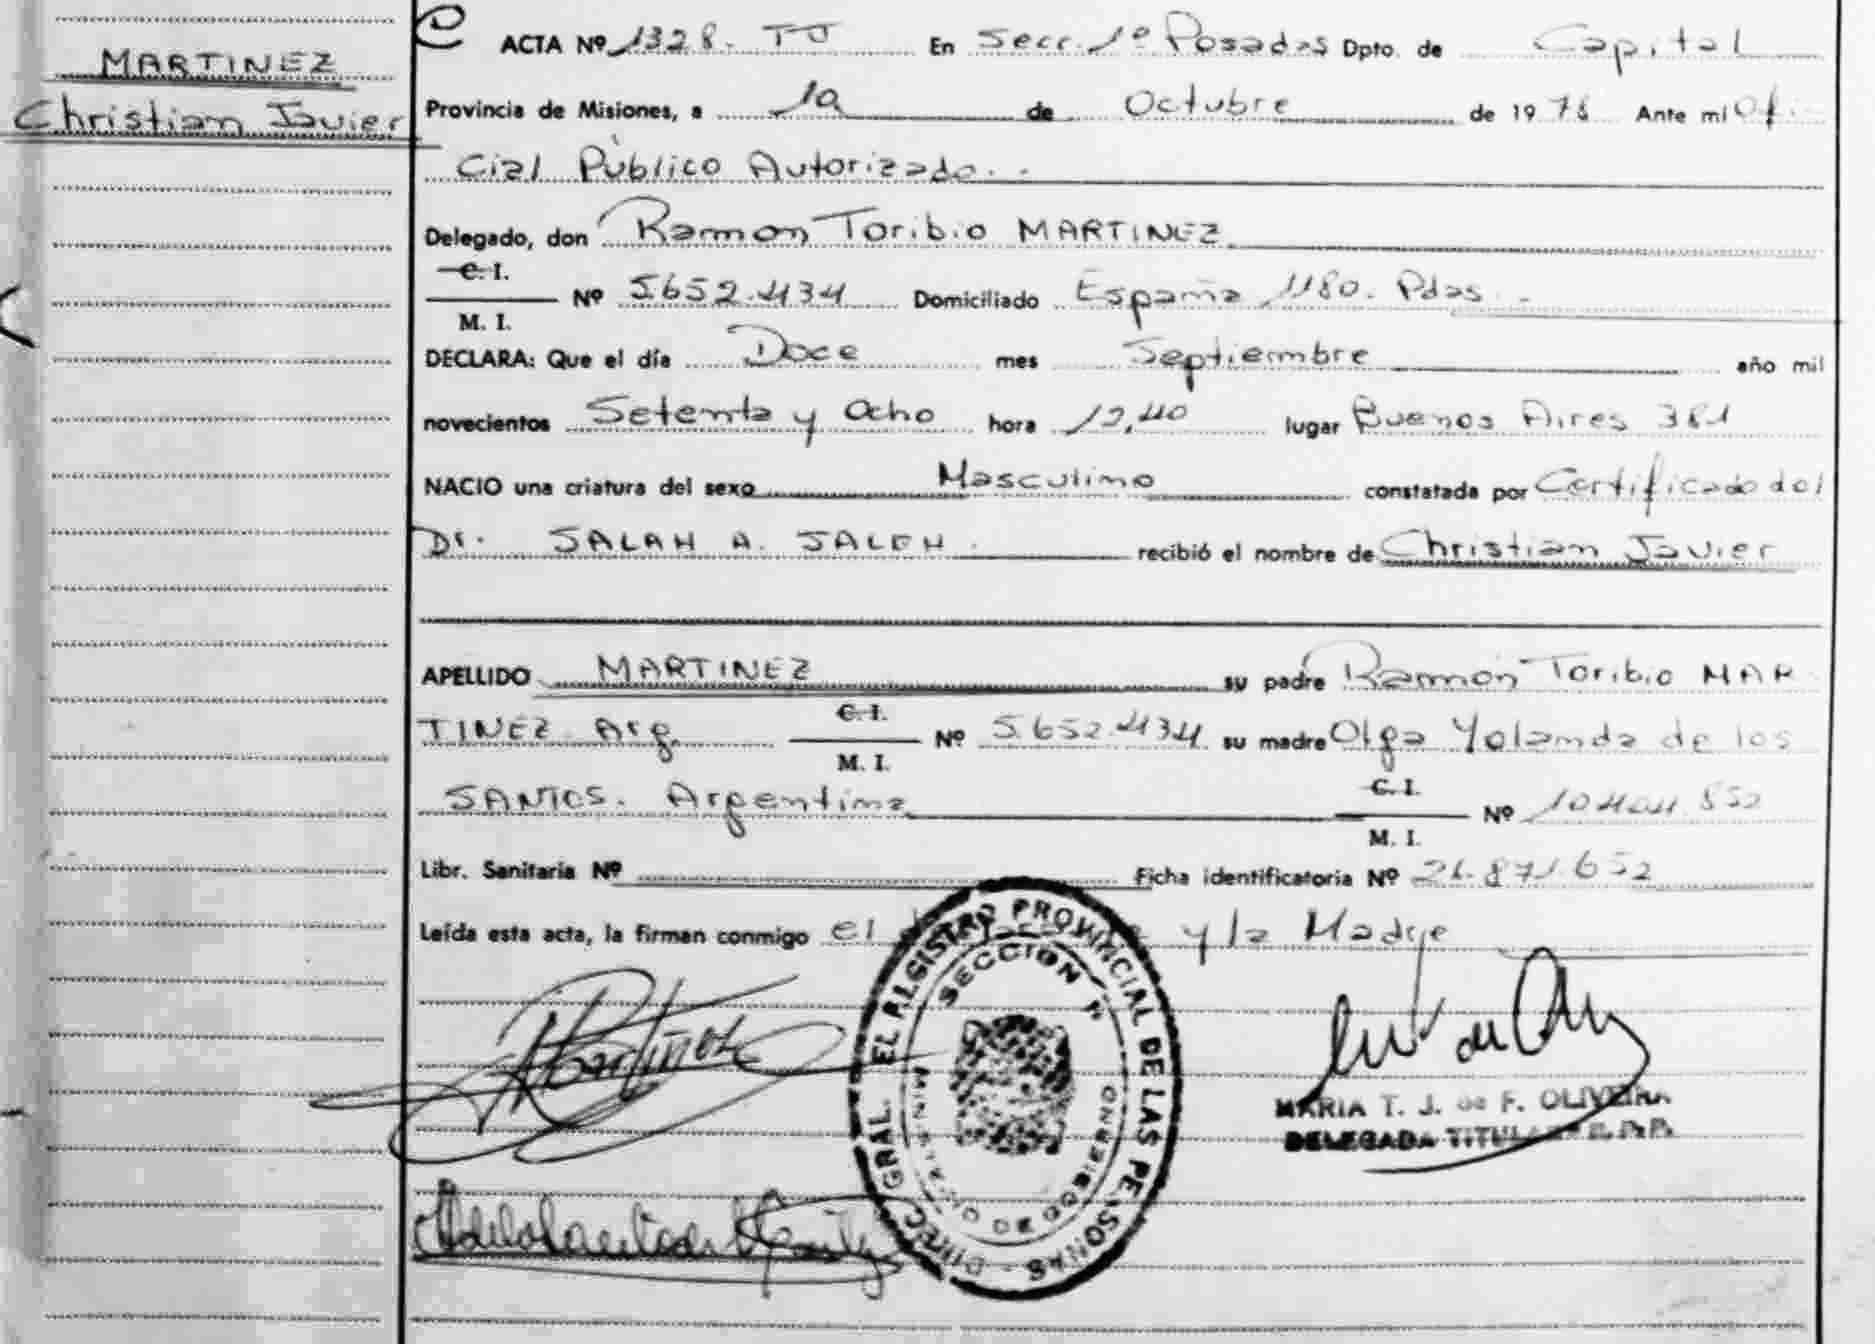 MARTINEZ
Christian Javier
ACTA Nº 1328. TJ En Secc. 1º Posadas Dpto. de Capital
Provincia de Misiones, a 10 de Octubre de 1978 Ante mi Ofi-
cial Público Autorizado.
Delegado, don Ramon Toribio MARTINEZ
C. I.
Nº 5.652.434 Domiciliado España 1180. Pdas.
M. I.
DECLARA: Que el día Doce mes Septiembre año mil
novecientos Setenta y Ocho hora 12,40 lugar Buenos Aires 381
NACIO una criatura del sexo Masculino constatada por Certificado del
Dr. SALAH A. SALEH. recibió el nombre de Christian Javier
APELLIDO MARTINEZ su padre Ramón Toribio MAR
TINEZ Arg. C. I. Nº 5.652.434 su madre Olga Yolanda de los
M. I.
SANTOS. Argentina C. I. Nº 10.404.852
M. I.
Libr. Sanitaria Nº Ficha identificatoria Nº 26.871.652
Leída esta acta, la firman conmigo el y la Madre
DIREC. GRAL. EL REGISTRO PROVINCIAL DE LAS PERSONAS
SECCION
MINISTERIO DE GOBIERNO
Martinez
MARIA T. J. de F. OLIVEIRA
DELEGADA TITULAR